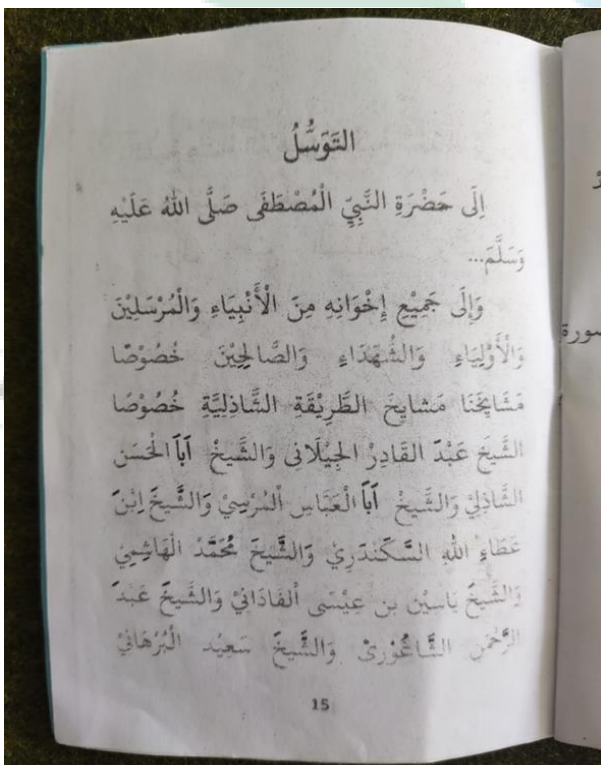 التَوَسُّلُ
اِلَى حَضْرَةِ النَّبِيِّ الْمُصْطَفَى صَلَّى اللهُ عَلَيْهِ
وَسَلَّمَ...
وَاِلَى جَمِيْعِ إِخْوَانِهِ مِنَ الْأَنْبِيَاءِ وَالْمُرْسَلِيْنَ
وَالْأَوْلِيَاءِ وَالشُّهَدَاءِ وَالصَّالِحِيْنَ خُصُوْصًا
مَشَايِخَنَا مَشَايِخَ الطَّرِيْقَةِ الشَّاذِلِيَّةِ خُصُوْصًا
الشَّيْخَ عَبْدَ القَادِرْ الجِيْلَانِى وَالشَّيْخْ آبَاَ الْحَسَن
الشَّاذِلِيْ وَالشَّيْخْ آبَاَ الْعَبَاسِ اْلمُرْسِيْ وَالشَّيْخَ اِبْنَ
عَطَاءِ اللهِ السَّكَنْدَرِيْ وَالشَّيْخَ مُحَمَّدْ الْهَاشِمِيْ
وَالشَّيْخَ يَاسِيْن بن عِيْسَى اْلفَادَانِيْ وَالشَّيْخَ عَبْدَ
الرَّحْمٰنِ الشَّاغُوْرِىْ وَالشَّيْخَ سَعِيْد الْبُرْهَانِيْ
15
سورة